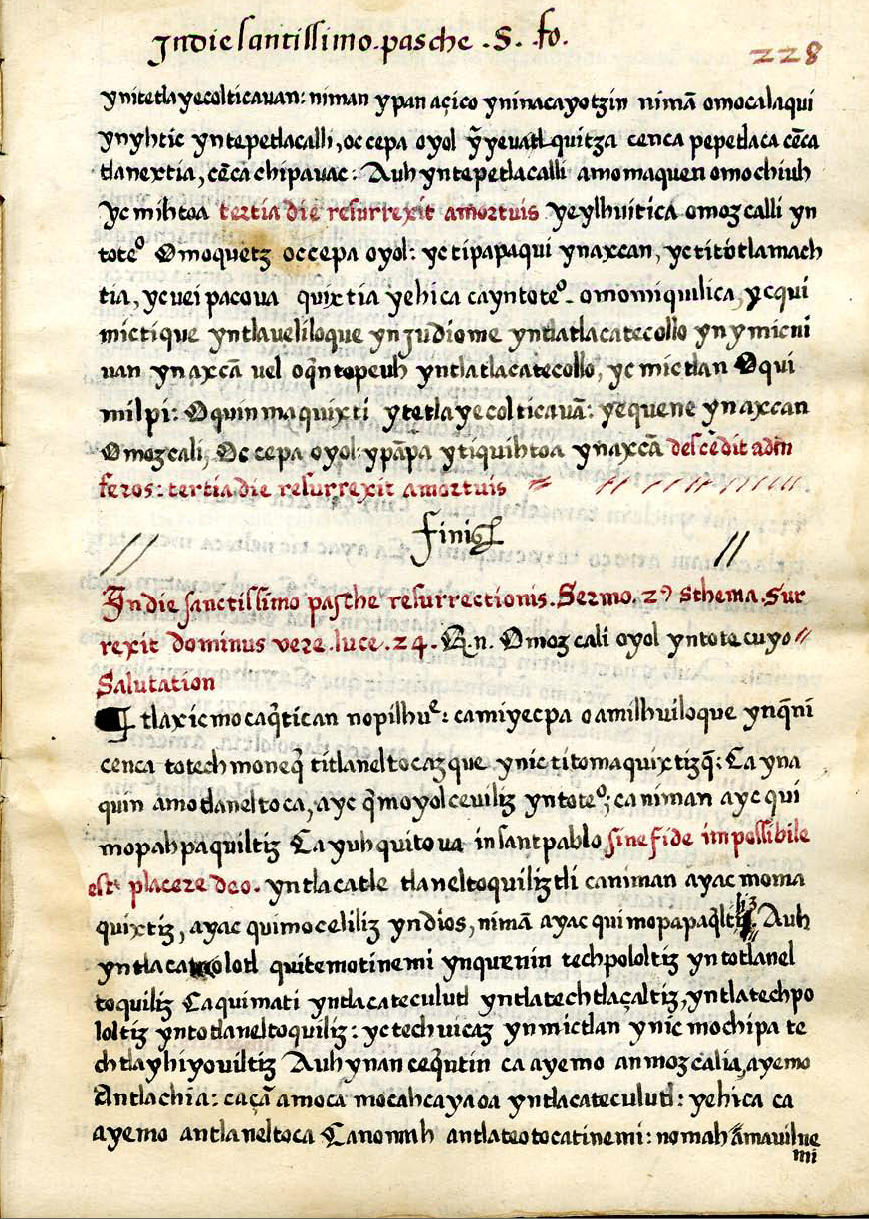 Jn die santissimo. pasche .S. fo.
228
ynitetlayecolticauan: niman ypan açico yninacayotzin nimã omocalaqui
ynyhtic yntepetlacalli, oc cepa oyol ỹ yeuatl quitza cenca pepetlaca cẽca
tlanextia, cẽca chipauac: Auh yntepetlacalli amo maquen omochiuh
yc mihtoa tertia die resurrexit amortuis yeylhuitica omozcalli yn
toteº Omoquetz occepa oyol: yc tipapaqui ynaxcan, yc titotlamach
tia, yc uei pacoua quixtia yehica ca yntoteº. omomiquilica, yc qui
mictique yntlaueliloque ynjudiome yntlatlacatecollo ynymicui
uan ynaxcã uel oq̃ntopeuh yntlatlacatecollo, yc mictlan Oqui
milpi: Oquinmaquixti ytetlayecolticauã: yequene ynaxcan
Omozcali, Oc cepa oyol ypãpa ytiquihtoa ynaxcã descẽdit adin
feros: tertia die resurrexit amortuis
Finis
Jn die sanctissimo pasche resurrectionis. Sermo. 29 Sthema. Sur
rexit dominus vere. luce. 24. Q.n. Omozcali oyol yntotecuyo
Salutation
tlaxicmocaq̃tican nopilhuᵉ: ca miyecpa oamilhuiloque ynq̃ni
cenca totech moneq̃ titlaneltocazque ynic titomaquixtizq̃: Ca yna
quin amo tlaneltoca, ayc q̃moyolceuiliz yntoteº; ca niman ayc qui
mopahpaquiltiz Ca yuh quitoua in sant pablo sine fide impossibile
est placere deo. yntlacatle tlaneltoquiliztli caniman ayac moma
quixtiz, ayac quimoceliliz yndios, nimã ayac quimopapaq̃lti Auh
yntlaca colotl quitemotinemi ynquenin techpololtiz yntotlanel
toquiliz Ca quimati yntlacateculutl yntlatechtlaçaltiz, yntlatechpo
loltiz yntotlaneltoquiliz: yc techuicaz ynmictlan ynic mochipa te
chtlayhiyouiltiz Auh ynan ceq̃ntin ca ayemo anmozcalia, ayemo
Antlachia: caçã amoca mocahcayaoa yntlacateculutl: yehica ca
ayemo antlaneltoca Canomah antlateotocatinemi: nomah ãmauilne
mi